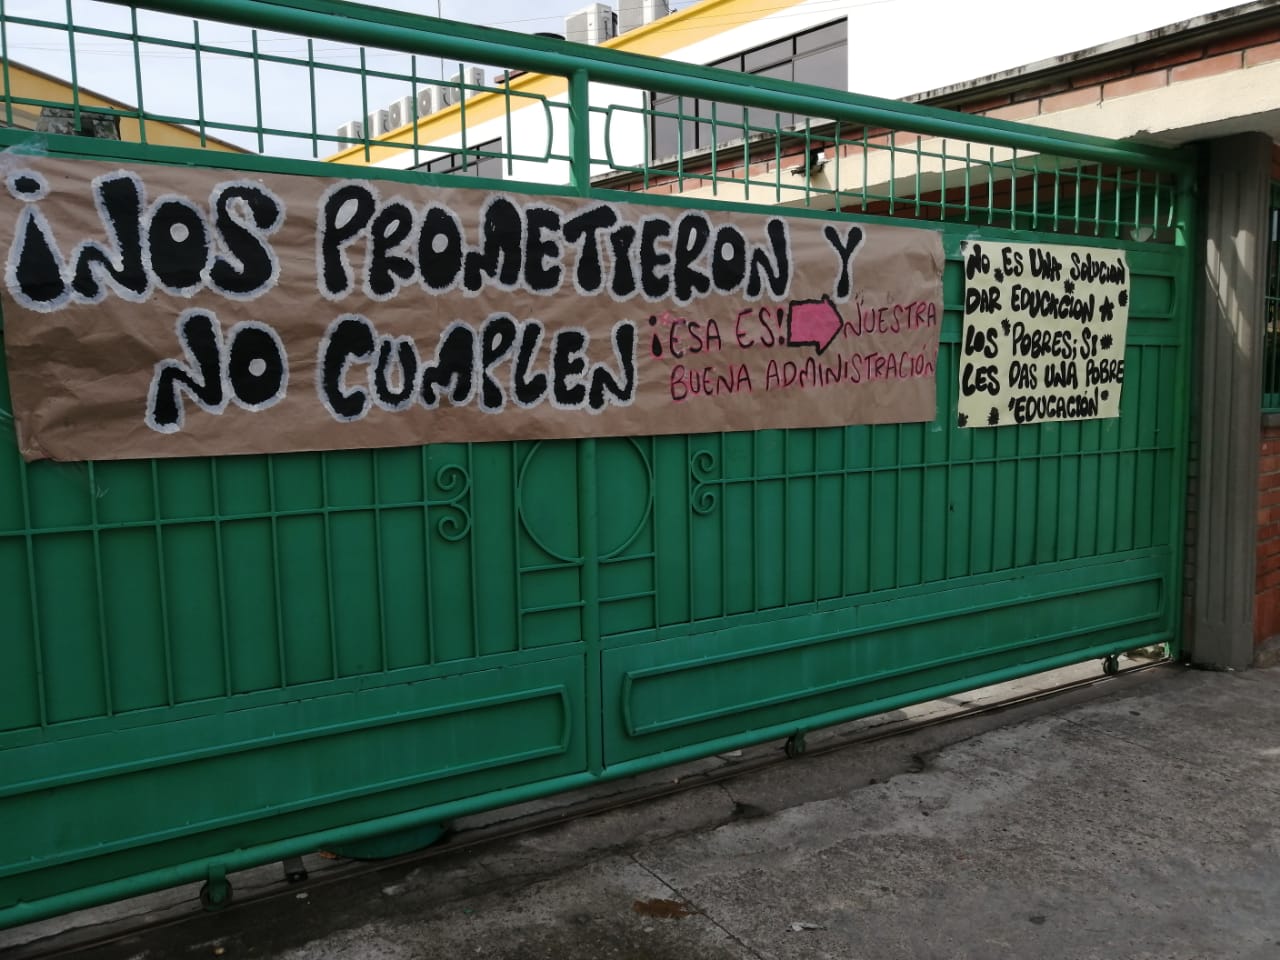 ¡NOS PROMETIERON Y
NO CUMPLEN
¡ESA ES! NUESTRA
BUENA ADMINISTRACIÓN
NO ES UNA SOLUCION
DAR EDUCACION A
LOS POBRES; SI
LES DAS UNA POBRE
"EDUCACIÓN"